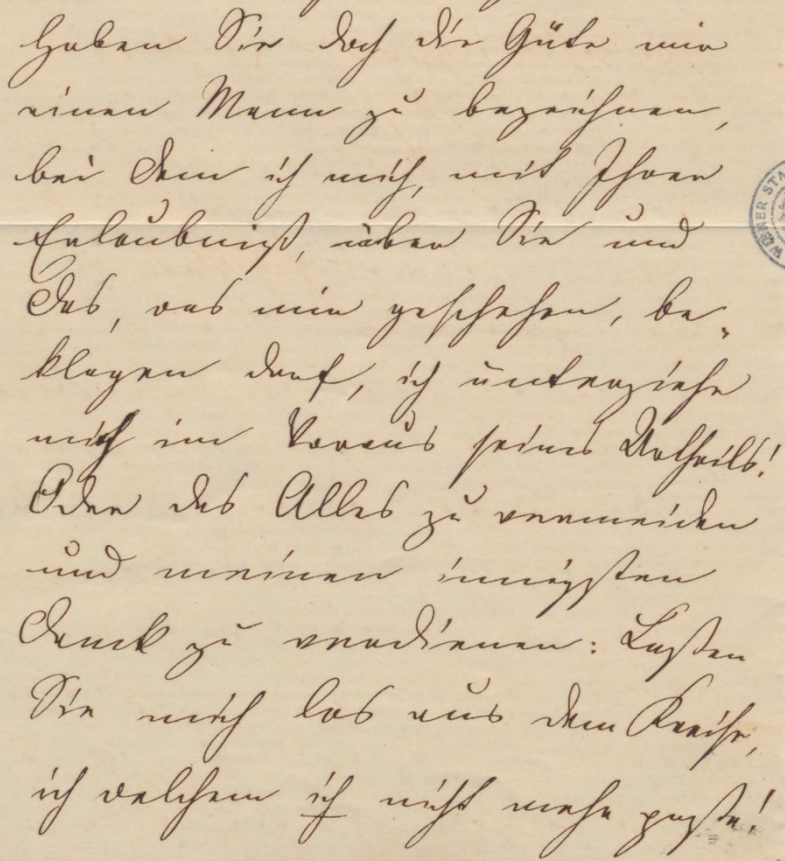 Haben Sie doch die Güte mir
einen Mann zu bezeichnen,
bei dem ich mich, mit Ihrer
Erlaubniß, über Sie und
das, was mir geschehen, be„
klagen darf, ich unterziehe
mich im Voraus seines Urtheils!
Oder das Alles zu vermeiden
und meinen innigsten
Dank zu verdienen: Laßen
Sie mich los aus dem Kreise,
ich welchem ich nicht mehr paße!
WIENER STA